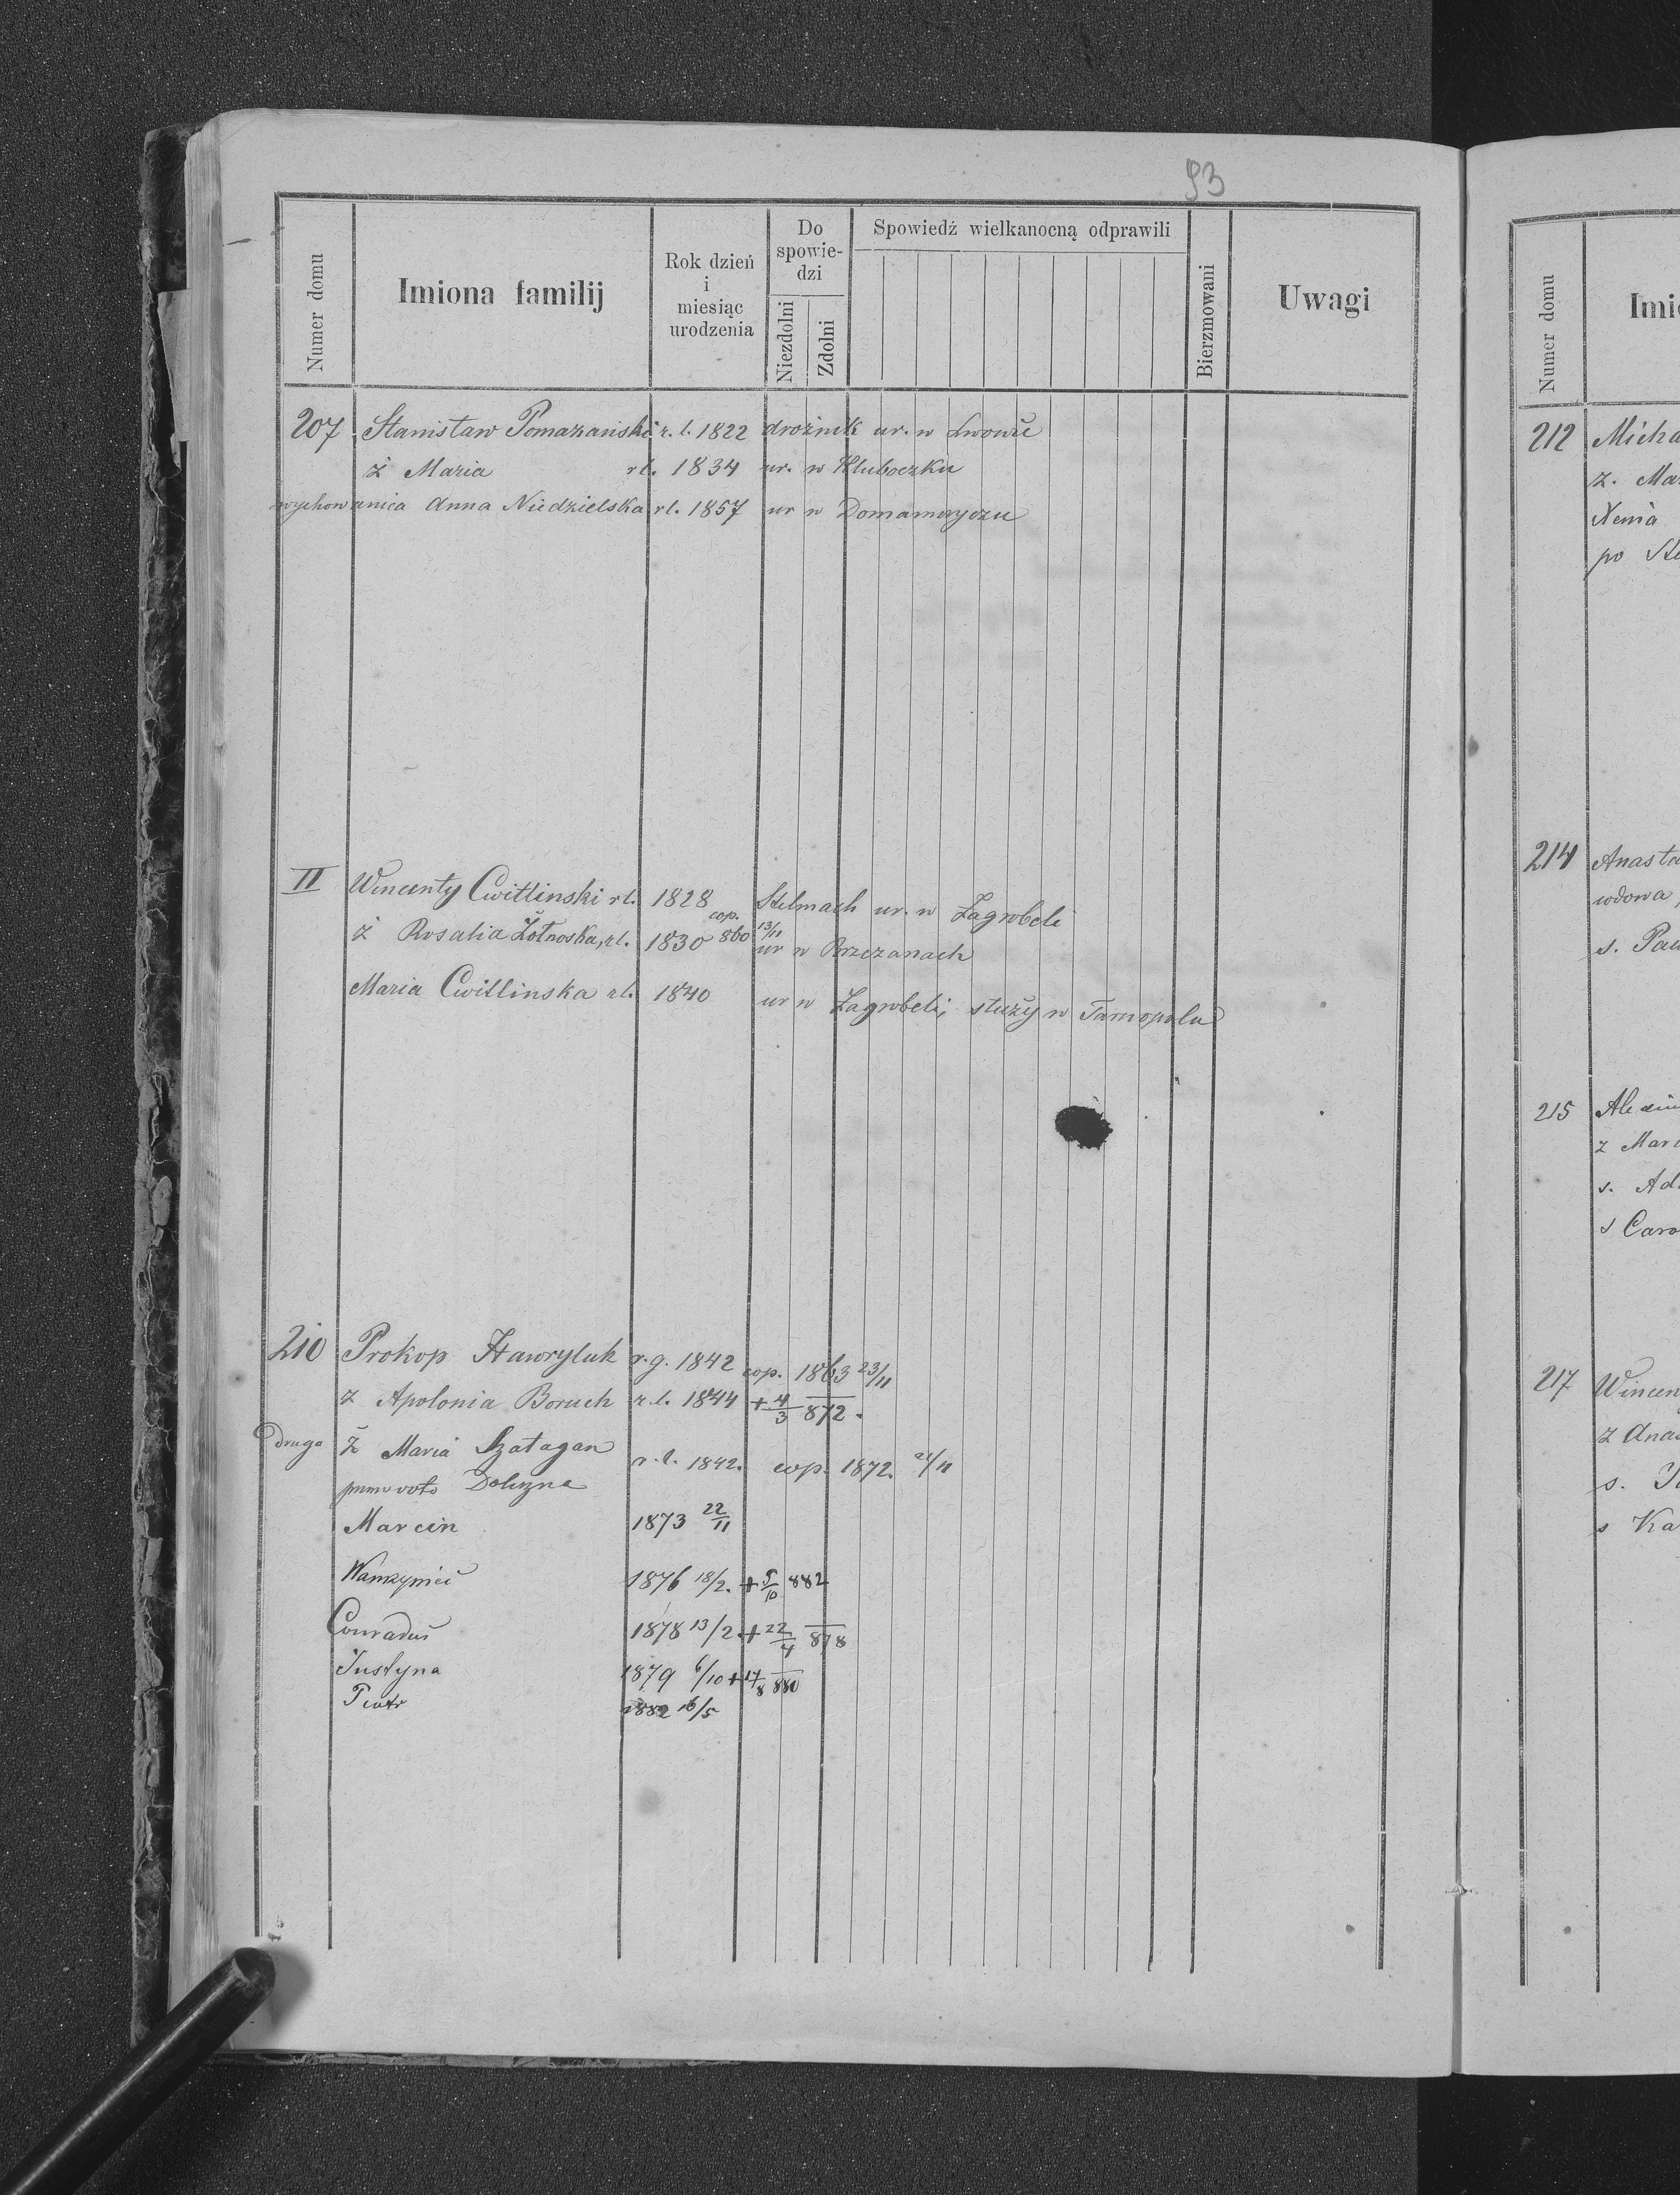 93
Numer domu
Imiona familij
Rok dzień i miesiąc urodzenia
Do spowiedzi
Niezdolni
Zdolni
Spowiedź wielkanocną odprawili
Bierzmowani
Uwagi
207 Stanisław Pomazański r. l. 1822 drożnik ur. w Lwowie
ż Maria rl. 1834 ur. w Hluboczku
wychowanica Anna Niedzielska rl. 1857 ur w Domamoryczu
II Wincenty Cwitlinski rl. 1828 Stelmach ur. w Zagrobeli
ż Rosalia rl. 1830 cop. 860 13/11 ur w Brzezanach
Maria Cwitlinska rl. 1840 ur w Zagrobeli, służy w Tarnopolu
210 Prokop Hawryluk r. g. 1842 cop. 1863 23/11
ż Apolonia Boruch r. l. 1844 + 4/3 872.
druga ż Maria Szatagan r. l. 1842. cop. 1872. 24/11
primo voto
Marcin 1873 22/11
Wawrzyniec 1876 18/2. + 5/10 882
Conradus 1878 13/2 + 22/4 878
Justyna 1879 6/10 + 17/8 880
Piotr 1882 16/5
Numer domu
Imi
212 Micha
z. Ma
Xenia
po
214 Anasta
wdowa
s. Paw
215
z Mar
s. Ad
s Caro
217 Wincen
z Ana
s.
s Ka